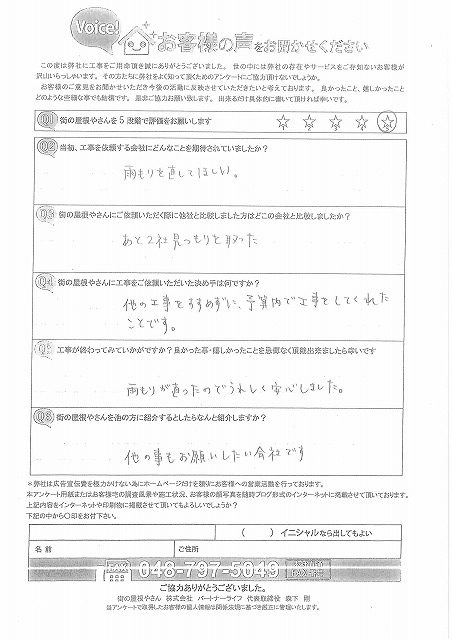 Voice!
お客様の声をお聞かせください
この度は弊社に工事をご用命頂き誠にありがとうございました。 世の中には弊社の存在やサービスをご存知ないお客様が
沢山いらっしゃいます。その方たちに弊社をよく知って頂くためのアンケートにご協力頂けないでしょうか。
お客様のご意見をお聞かせいただき今後の活動に反映させていただきたいと考えております。 良かったこと、嬉しかったこと
どのような些細な事でも結構です。 是非ご協力お願い致します。 出来るだけ具体的に書いて頂ければ幸いです。
Q1 街の屋根やさんを5段階で評価をお願いします
Q2 当初、工事を依頼する会社にどんなことを期待されていましたか？
雨もりを直してほしい。
Q3 街の屋根やさんにご依頼いただく際に他社と比較しました方はどこの会社と比較しましたか？
あと2社見つもりを取った
Q4 街の屋根やさんに工事をご依頼いただいた決め手は何ですか？
他の工事をすすめずに、予算内で工事をしてくれた
ことです。
Q5 工事が終わってみていかがですか？良かった事・嬉しかったことを忌憚なく頂戴出来ましたら幸いです
雨もりが直ったのでうれしく安心しました。
Q6 街の屋根やさんを他の方に紹介するとしたらなんと紹介しますか？
他の事もお願いしたい会社です
＊弊社は広告宣伝費を極力かけない為にホームページだけを頼りにお客様への営業活動を行っております。
本アンケート用紙またはお客様宅の調査風景や施工状況、お客様の顔写真を随時ブログ形式のインターネットに掲載させて頂いております。
上記内容をインターネットや印刷物に掲載させて頂いてもよろしいでしょうか？
下記の中から〇印をお付下さい。
（　）イニシャルなら出してもよい
名 前
ご住所
FAX 048-797-5049
ご協力ありがとうございました。
街の屋根やさん 株式会社 パートナーライフ 代表取締役 森下 剛
当アンケートで取得したお客様の個人情報は関係法規に基づき厳正に管理いたします。